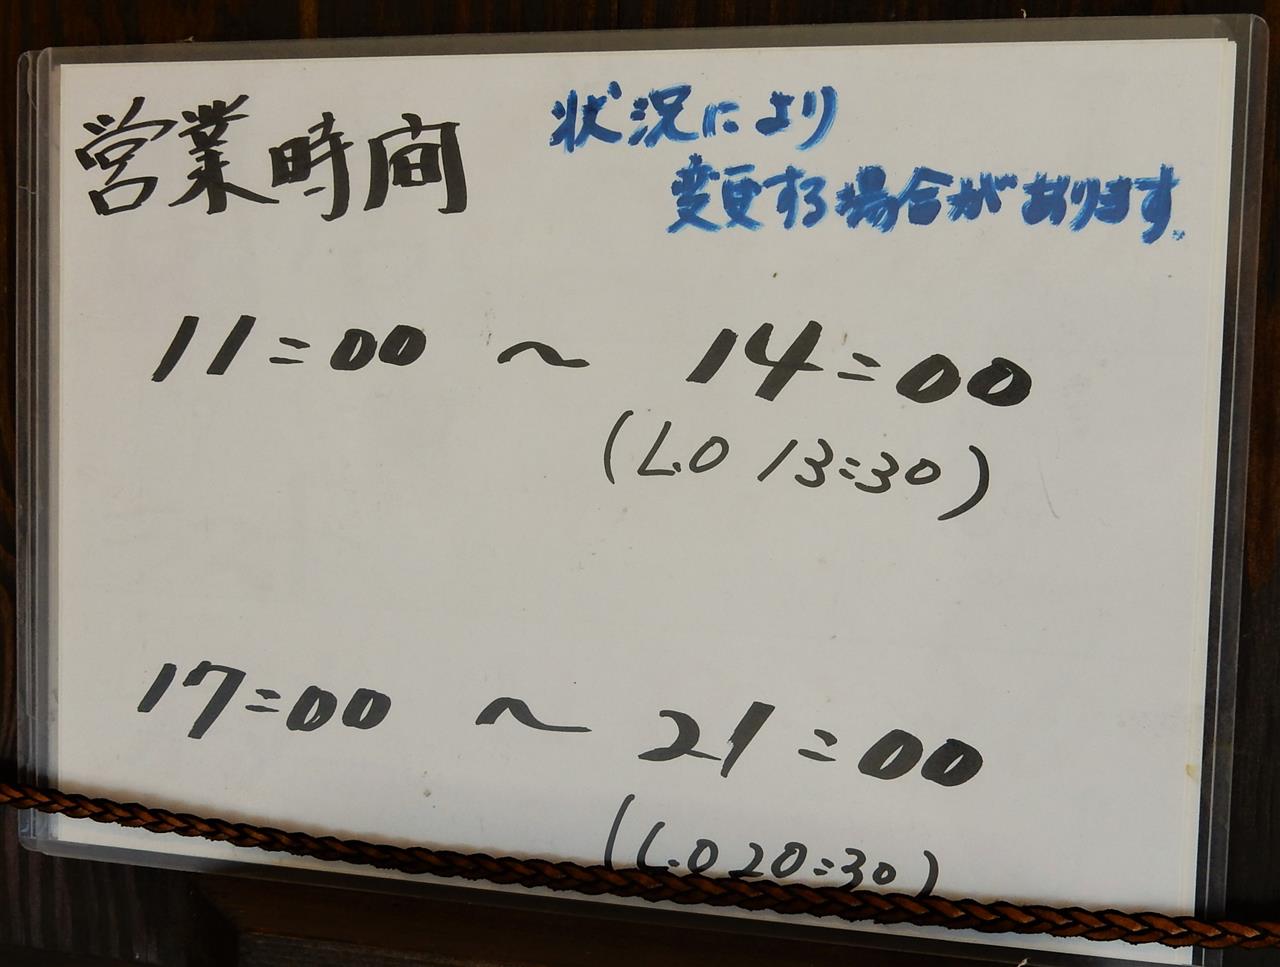 営業時間
状況により
変更する場合があります。
11:00 ~ 14:00
(L.O 13:30)
17:00 ~ 21:00
(L.O 20:30)